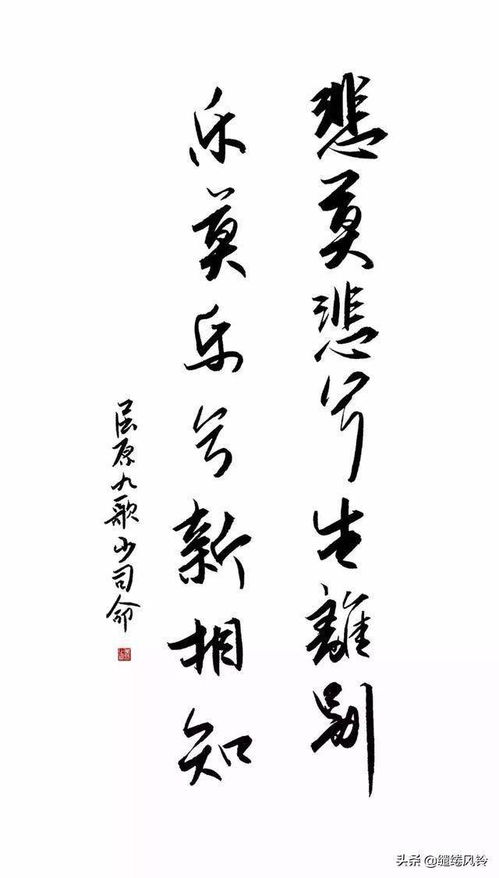 悲莫悲兮生離别
乐莫乐兮新相知
屈原九歌少司命
头条 @缱绻风铃